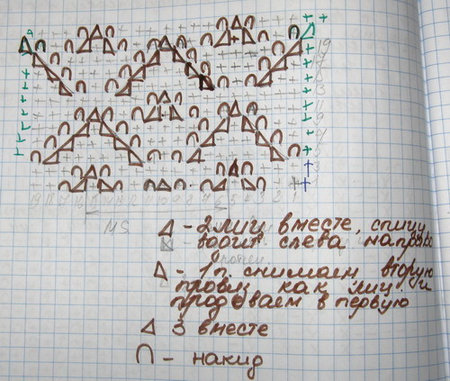 - 2 лиц вместе, спицу
вводит слева направо
- 1 п. снимаем вторую
провяз как лиц. и
продеваем в первую
3 вместе
- накид
MS